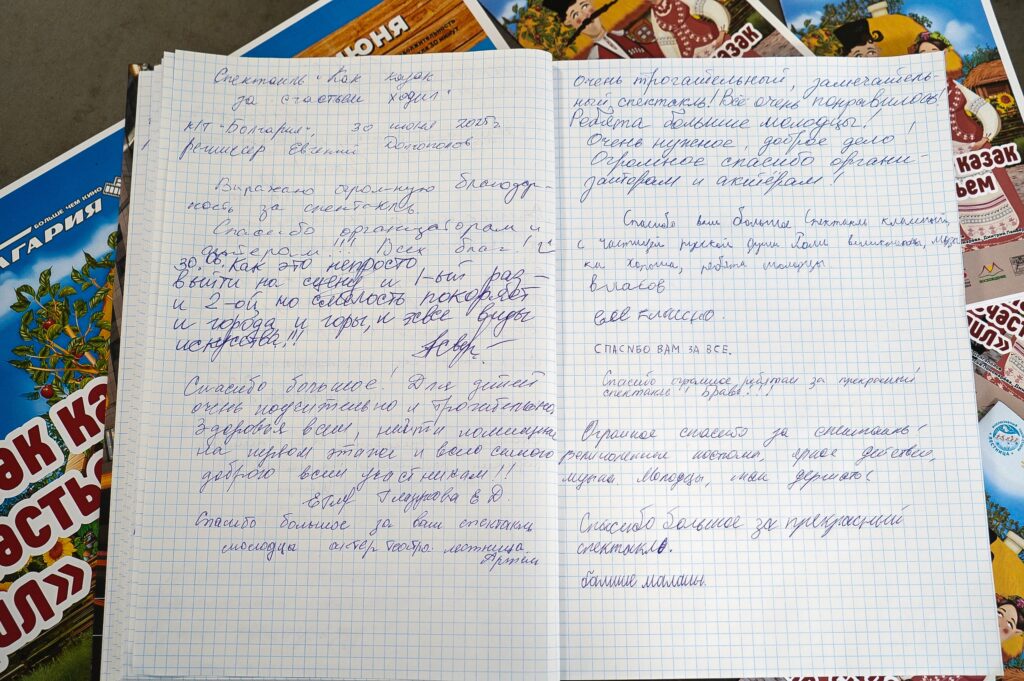 Спектакль "Как казак
за счастьем ходил"
к/т "Болгария", 30 июня 2025 г
режиссёр Евгений
Выражаю огромную благодар-
ность за спектакль.
Спасибо организаторам и
актёрам!!! Всех благ!
30.06. Как это непросто
выйти на сцену и 1-ый раз
и 2-ой, но смелость покоряет
и города, и горы, и все виды
искусства!!!
Спасибо большое! Для детей
очень поучительно и трогательно,
Здоровья всем, найти помещение
на первом этаже и всего самого
доброго всем участникам!!
Е. Д.
Спасибо большое за вам спектакль
молодцы актёр театра лестница.
Артём
очень трогательный, замечатель-
ный спектакль! Всё очень понравилось!
Ребята большие молодцы!
Очень нужное, доброе дело!
Огромное спасибо органи-
заторам и актёрам!
Спасибо вам большое Спектакль классный
с частицей русской души Поли великолепны, музы
ка хороша, ребята молодцы
Власов
СПАСИБО ВАМ ЗА ВСЕ.
Спасибо огромное, ребятам за прекрасный
спектакль Браво!!!
Огромное спасибо за спектакль!
Великолепные костюмы, яркое действие,
музыка. Молодцы, так держать!
Спасибо большое за прекрасный
спектакль.
ИЮНЯ
БОЛЬШЕ ЧЕМ КИНО
ГАРИЯ
АК КА
ИЛ»
казак
казак
ьем